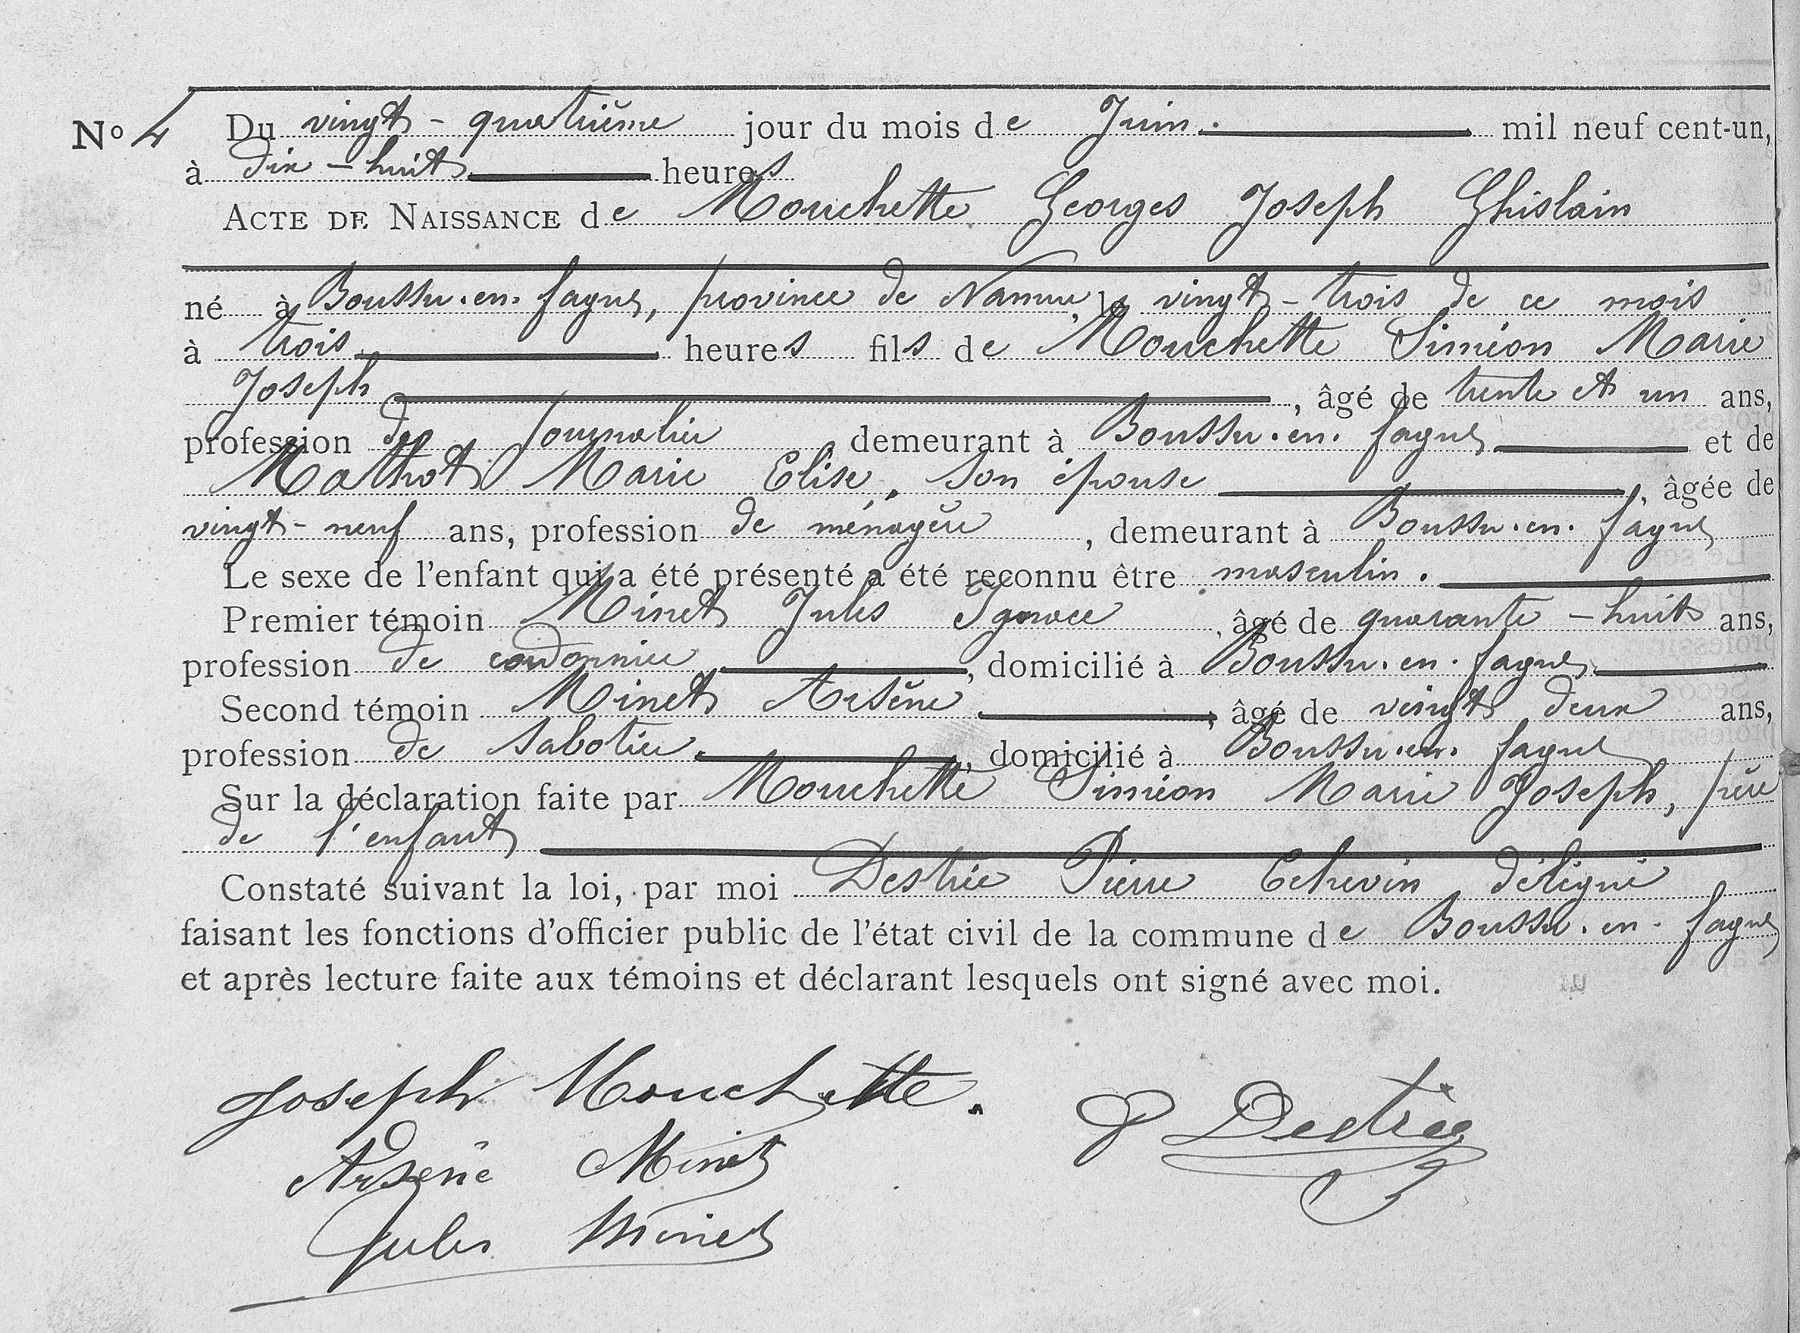 No 4 Du vingt-quatrième jour du mois de Juin. mil neuf cent-un,
à dix-huit heures
ACTE DE NAISSANCE de Mouchette Georges Joseph Ghislain
né à Boussu-en-fagnes, province de Namur, le vingt-trois de ce mois
à trois heures fils de Mouchette Siméon Marie
Joseph, âgé de trente et un ans,
profession de journalier demeurant à Boussu-en-fagnes et de
Mathot Marie Elise, son épouse, âgée de
vingt-neuf ans, profession de ménagère, demeurant à Boussu-en-fagnes
Le sexe de l'enfant qui a été présenté a été reconnu être masculin.
Premier témoin Minet Jules Ignace, âgé de quarante-huit ans,
profession de cordonnier, domicilié à Boussu-en-fagnes
Second témoin Minet Arsène, âgé de vingt deux ans,
profession de sabotier, domicilié à Boussu-en-fagnes
Sur la déclaration faite par Mouchette Siméon Marie Joseph, père
de l'enfant
Constaté suivant la loi, par moi Destrée Pierre Echevin délégué
faisant les fonctions d'officier public de l'état civil de la commune de Boussu-en-fagnes
et après lecture faite aux témoins et déclarant lesquels ont signé avec moi.
Joseph Mouchette. P Destrée
Arsène Minet
Jules Minet